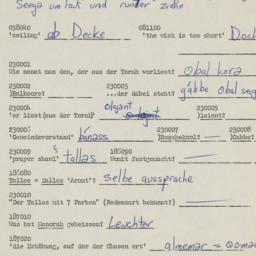 Sega um rauf und runter ziehn
058040 081100
'ceiling' ob Decke 'the wick is too short' Doch
230001
Wie nennt man den, der aus der Torah vorliest? obal kora
230002 230003
)Balkore? ...der dabei steht? gabbe obal seg
230004 olajant 230005
'er liest(aus der Torah)' )leient?
230006 230007 230008
'Gemeindevorstand' bánass )Roschekool? )Gabbe?
230009 185090
'prayer shawl' tallas Womit festgemacht?
185080
Talles = Dalles 'Armut'? selbe aussprache
230010
"Der Talles mit 7 Farben" (Redensart bekannt?)
187010
Was hat Menorah geheissen? Leuchter
187020
'die Erhöhung, auf der der Chasen ort' almemar =